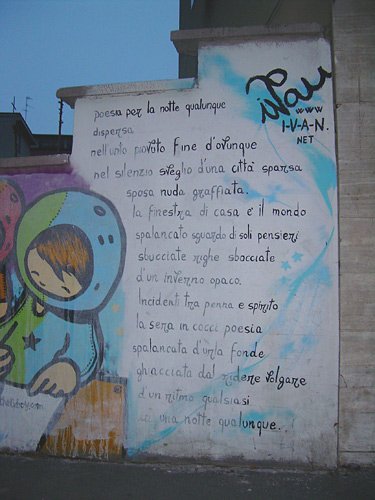 ivan
www
I-V-A-N.
NET
poesia per la notte qualunque
dispersa
nell'urlo piovuto fine d'ovunque
nel silenzio sveglio d'una città sparsa
sposa nuda graffiata.
la finestra di casa è il mondo
spalancato sguardo di soli pensieri
sbucciate righe sbocciate
d'un inverno opaco.
Incidenti tra penna e spirito
la sera in cocci poesia
spalancata d'urla fonde
ghiacciata dal ridere volgare
d'un ritmo qualsiasi
una notte qualunque...